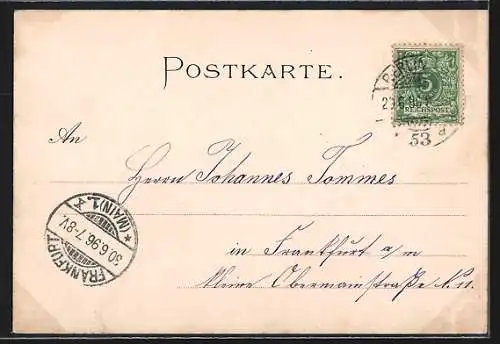 POSTKARTE.
BERLIN
5
REICHSPOST
53
a
An
Herrn Johannes Tommes
FRANKFURT
* (MAIN) 1. *
30.6.96.7-8V.
in Frankfurt a/m
kleine Obermainstraße No 11.